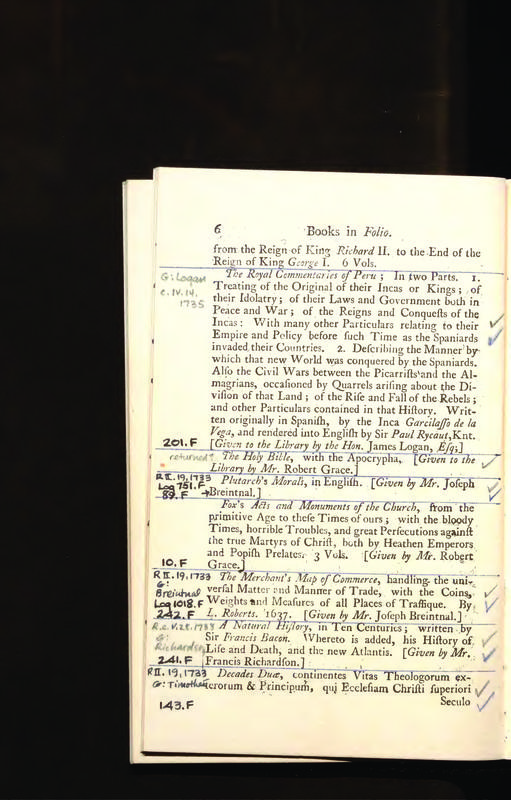 6 Books in Folio.
from the Reign of King Richard II. to the End of the
Reign of King George I. 6 Vols.
G: Logan
c. IV. 14.
1735
The Royal Commentaries of Peru ; In two Parts. 1.
Treating of the Original of their Incas or Kings ; of
their Idolatry ; of their Laws and Government both in
Peace and War ; of the Reigns and Conqueſts of the
Incas : With many other Particulars relating to their
Empire and Policy before ſuch Time as the Spaniards
invaded their Countries. 2. Deſcribing the Manner by
which that new World was conquered by the Spaniards.
Alſo the Civil Wars between the Picarriſts and the Al-
magrians, occaſioned by Quarrels ariſing about the Di-
viſion of that Land ; of the Riſe and Fall of the Rebels ;
and other Particulars contained in that Hiſtory. Writ-
ten originally in Spaniſh, by the Inca Garcilaſſo de la
Vega, and rendered into Engliſh by Sir Paul Rycaut, Knt.
201.F [Given to the Library by the Hon. James Logan, Eſq;]
returned? The Holy Bible, with the Apocrypha, [Given to the
Library by Mr. Robert Grace.]
RII.19,1733 Plutarch's Morals, in Engliſh. [Given by Mr. Joſeph
Log 751.F
89.F Breintnal.]
Fox's Acts and Monuments of the Church, from the
primitive Age to theſe Times of ours ; with the bloody
Times, horrible Troubles, and great Perſecutions againſt
the true Martyrs of Chriſt, both by Heathen Emperors
and Popiſh Prelates. 3 Vols. [Given by Mr. Robert
10.F Grace.]
RII.19.1733 The Merchant's Map of Commerce, handling the uni-
G: Breintnal verſal Matter and Manner of Trade, with the Coins,
Log 1018.F Weights and Meaſures of all Places of Traffique. By
242.F L. Roberts. 1637. [Given by Mr. Joſeph Breintnal.]
A Natural Hiſtory, in Ten Centuries ; written by
G: Sir Francis Bacon. Whereto is added, his Hiſtory of
Richardson Life and Death, and the new Atlantis. [Given by Mr.
241.F Francis Richardſon.]
RII.19,1733 Decades Duæ, continentes Vitas Theologorum ex-
G: Timothee terorum & Principum, qui Eccleſiam Chriſti ſuperiori
143.F Seculo